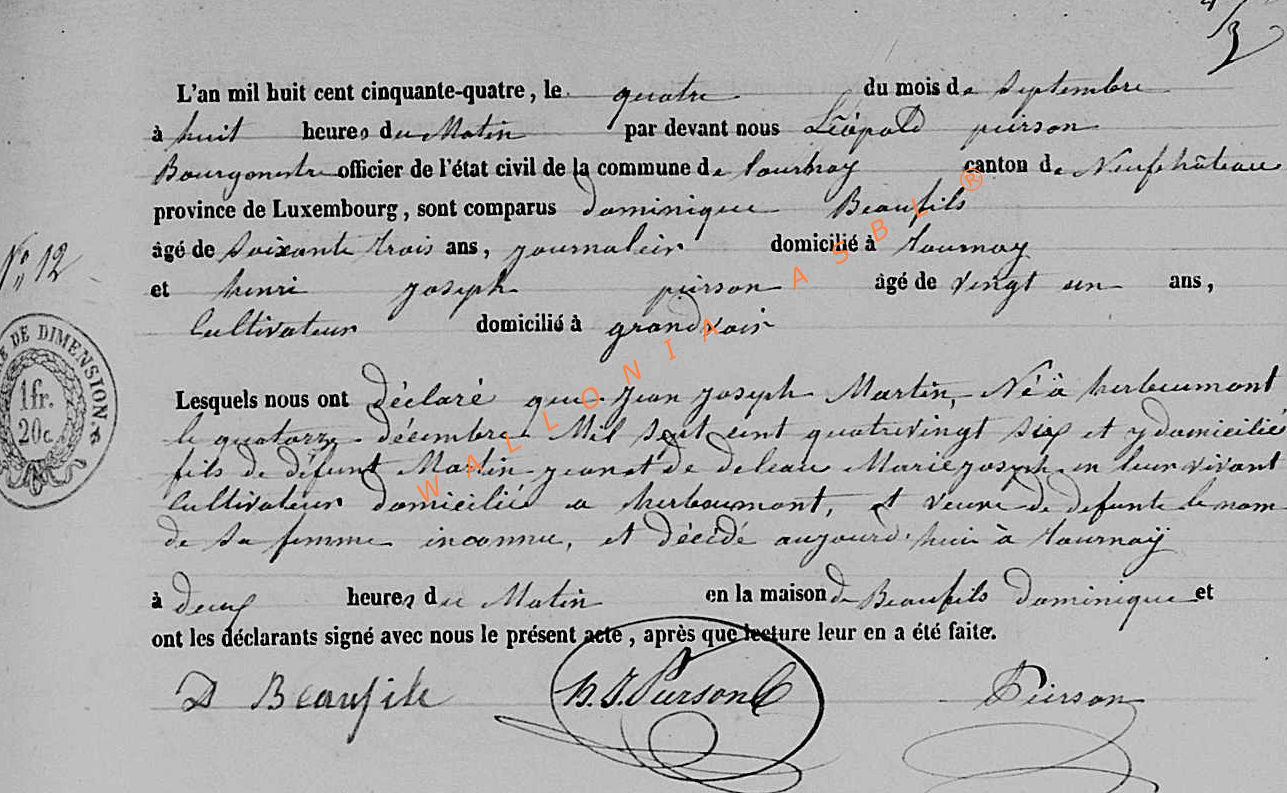 3
L'an mil huit cent cinquante-quatre, le quatre du mois de Septembre
à huit heures du Matin par devant nous Léopold pierson
Bourgmestre officier de l'état civil de la commune de tournay canton de Neufchâteau
province de Luxembourg, sont comparus dominique Beaufils
âgé de Soixante trois ans, journalier domicilié à tournay
N° 12
et henri joseph pierson âgé de vingt un ans,
Cultivateur domicilié à grandvoir
DE DIMENSION
1fr.
20c.
Lesquels nous ont déclaré que jean joseph Martin, Né à herbeumont
le quatorze décembre Mil sept cent quatrevingt six et y domicilié
fils de défunt Martin jean et de deleau Marie joseph en leur vivant
Cultivateur domicilié a herbeumont, et veuve de defunte le nom
de sa femme inconnu, et décédé aujourd'huii à tournaÿ
à deux heures du Matin en la maison de Beaufils dominique et
ont les déclarants signé avec nous le présent acte, après que lecture leur en a été faite.
D Beaufils H. J. Pierson Pierson
WALLONIA ASBL ®